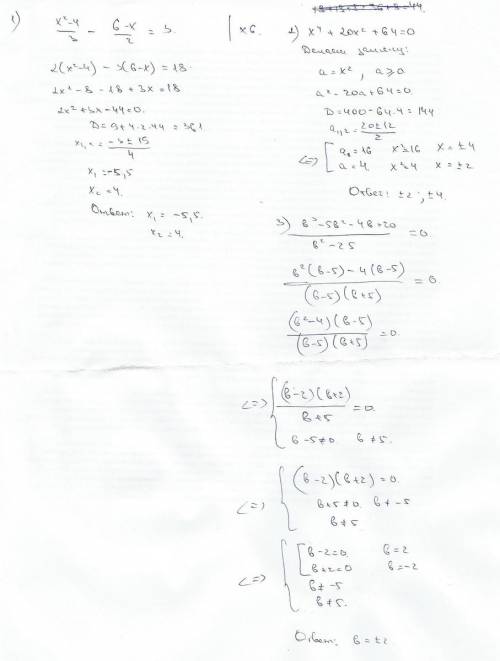 1) (x²-4)/3 - (6-x)/2 = 3. | ×6.
2(x²-4) - 3(6-x) = 18
2x² - 8 - 18 + 3x = 18
2x² + 3x - 44 = 0.
D = 9 + 4·2·44 = 361
x₁,₂ = (-3 ± 15)/4
x₁ = -5,5
x₂ = 4.
Ответ: x₁ = -5,5.
x₂ = 4.
2) x⁴ + 20x² + 64 = 0
Делаем замену:
a = x², a ≥ 0
a² - 20a + 64 = 0
D = 400 - 64·4 = 144
a₁,₂ = (20 ± 12)/2
<=> [ a₁ = 16 x² = 16 x = ±4
a = 4. x² = 4 x = ±2
Ответ: ±2; ±4.
3) (b³ - 5b² - 4b + 20)/(b² - 25) = 0.
(b²(b-5) - 4(b-5))/((b-5)(b+5)) = 0.
((b²-4)(b-5))/((b-5)(b+5)) = 0.
<=> { ((b-2)(b+2))/(b+5) = 0.
b-5≠0 b≠5.
<=> { (b-2)(b+2) = 0.
b+5≠0 b≠-5
b≠5.
<=> { [ b-2=0. b=2
b+2=0 b=-2
b≠-5
b≠5.
Ответ: b = ±2